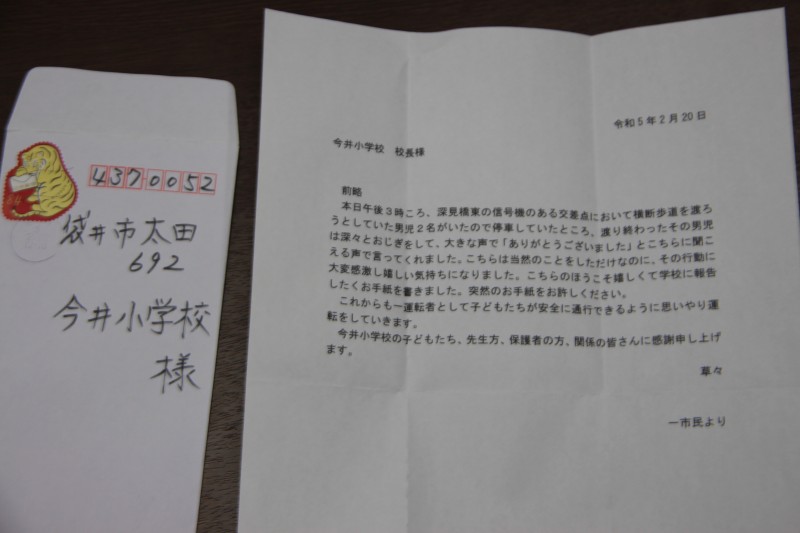 4370052
袋井市太田
692
今井小学校
様
令和5年2月20日
今井小学校 校長様
前略
本日午後3時ころ、深見橋東の信号機のある交差点において横断歩道を渡ろ
うとしていた男児2名がいたので停車していたところ、渡り終わったその男児
は深々とおじぎをして、大きな声で「ありがとうございました」とこちらに聞こ
える声で言ってくれました。こちらは当然のことをしただけなのに、その行動に
大変感激し嬉しい気持ちになりました。こちらのほうこそ嬉しくて学校に報告
したくお手紙を書きました。突然のお手紙をお許しください。
これからも一運転者として子どもたちが安全に通行できるように思いやり運
転をしていきます。
今井小学校の子どもたち、先生方、保護者の方、関係の皆さんに感謝申し上げ
ます。
草々
一市民より